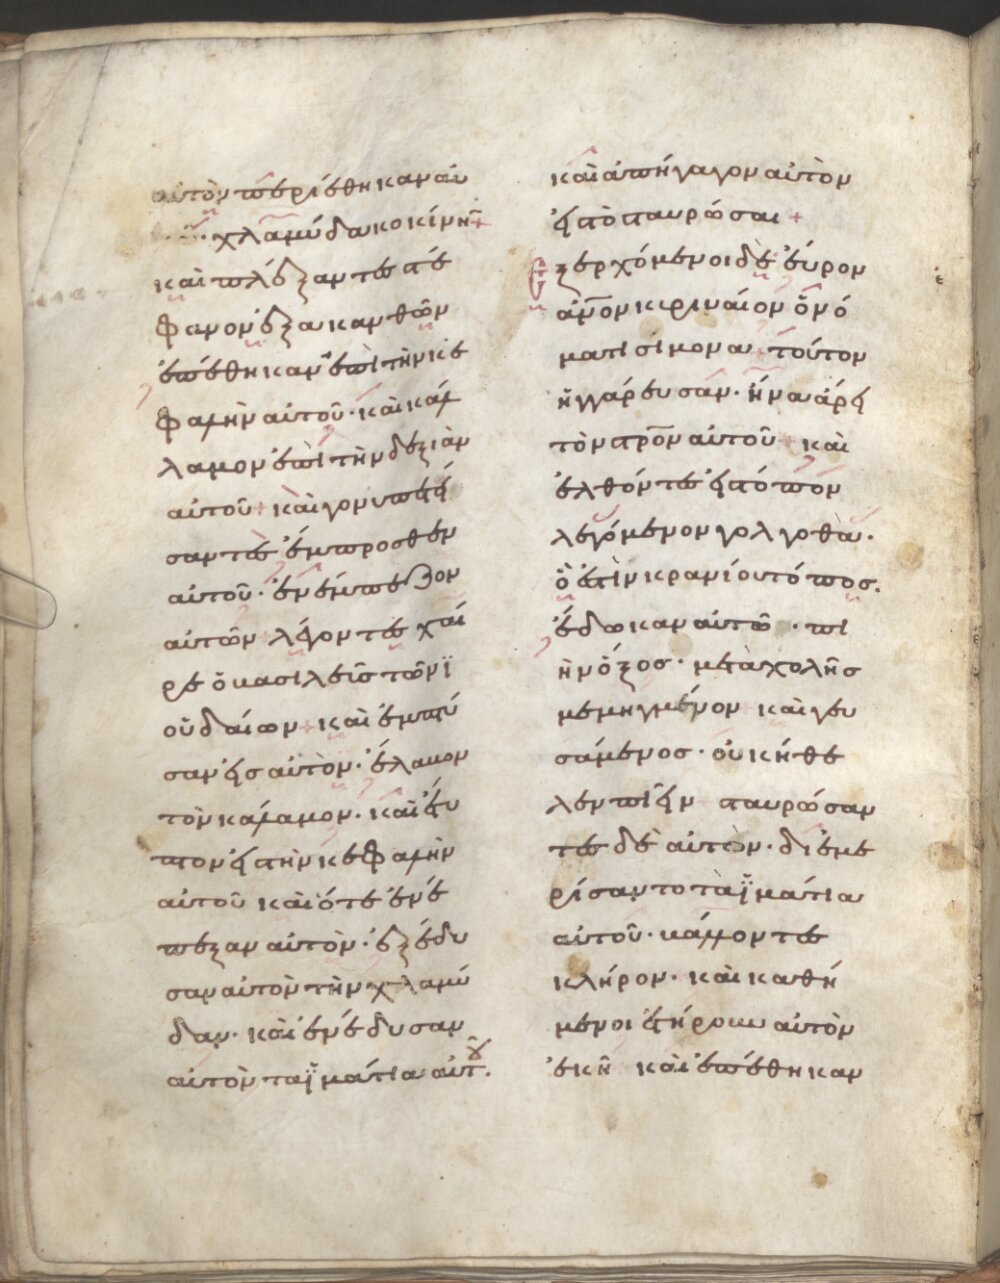 αὐτὸν περιέθηκαν αὐ
χλαμύδα κοκίνην +
καὶ πλέξαντες στέ
φανον ἐξ ακανθῶν
ἐπέθηκαν ἐπὶ τὴν κε
φαλὴν αὐτοῦ · καὶ κάλ
λαμον ἐπὶ τὴν δεξιὰν
αὐτοῦ + καὶ γονυπετεί
σαντες ἔμπροσθεν
αὐτοῦ · ἐνέμπεζον
αὐτῶν λέγοντες χαί
ρε ὁ βασιλεῖς τῶν ϊ
οὐδαίων + καὶ ἐμπτύ
σαν εἰς αὐτὸν · ἔλαβον
τὸν κάλαμον · καὶ ἔτυ
πτον εἰς τὴν κεφαλὴν
αὐτοῦ καὶ ότε ἐνέ
πεξαν αὐτὸν · ἐξέδυ
σαν αὐτὸν τὴν χλαμύ
δαν · καὶ ἐνέδυσαν
αὐτὸν τὰ ϊμάτια αὐτοῦ.
καὶ ἀπήγαγον αὐτὸν
εἰς τὸ σταυρώσαι +
Εξερχόμενοι δὲ εὑρον
ἀνον κιριναίον ὀνό
ματι σίμονα + τούτον
ἠγγάρευσαν · ἥνα ἄρει
τὸν στρον αὐτοῦ + καὶ
ελθόντες εἰς τόπον
λεγόμενον γολγοθὰ ·
ὅ ἐστὶν κρανίου τόπος.
ἔδωκαν αὐτῶ · πι
ὴν ὄξος · μετὰ χολῆς
μεμηγμένον καὶ γευ
σάμενος · οὐκ ήθε
λεν πιεῖν + σταυρώσαν
τες δὲ αὐτὸν · διεμε
ρίσαντο τὰ ϊμάτια
αὐτοῦ · βάλλοντες
κλήρον · καὶ καθή
μενοι ἐτήρουν αὐτὸν
ἐκῆ καὶ ἐπέθηκαν